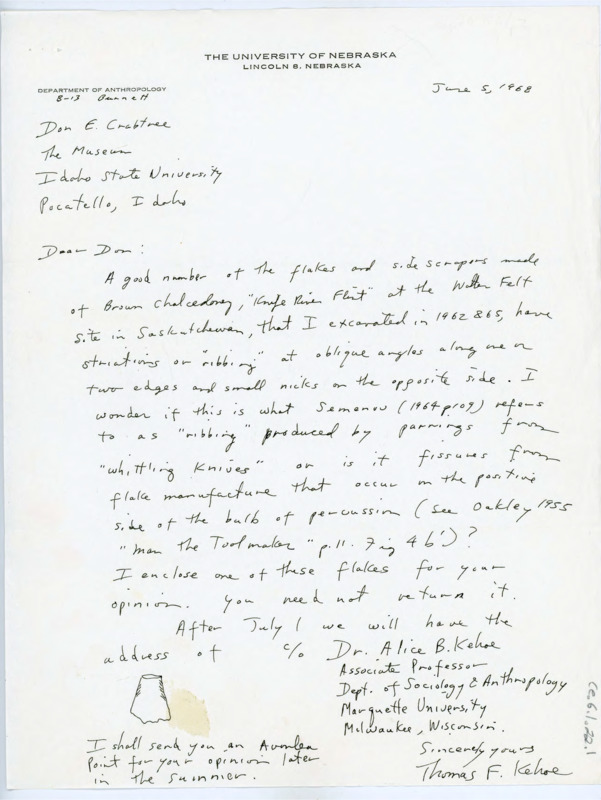 THE UNIVERSITY OF NEBRASKA
LINCOLN 8, NEBRASKA
DEPARTMENT OF ANTHROPOLOGY
June 5, 1968
B-13 Burnett
Don E. Crabtree
The Museum
Idaho State University
Pocatello, Idaho
Dear Don:
A good number of the flakes and side scrapers made
of Brown Chalcedony, "Knife River Flint" at the Walter Felt
site in Saskatchewan, that I excavated in 1962 & 65, have
striations or "ribbing" at oblique angles along one or
two edges and small nicks on the opposite side. I
wonder if this is what Semenov (1964 p109) refers
to as "ribbing" produced by parings from
"whittling knives" or is it fissures from
flake manufacture that occur on the positive
side of the bulb of percussion (see Oakley 1955
"Man the Toolmaker" p.11. Fig 4 b')?
I enclose one of these flakes for your
opinion. You need not return it.
After July 1 we will have the
address of c/o Dr. Alice B. Kehoe
Associate Professor
Dept. of Sociology & Anthropology
Marquette University
Milwaukee, Wisconsin.
I shall send you an Avonlea
Point for your opinion later
in the summer.
Sincerely yours
Thomas F. Kehoe